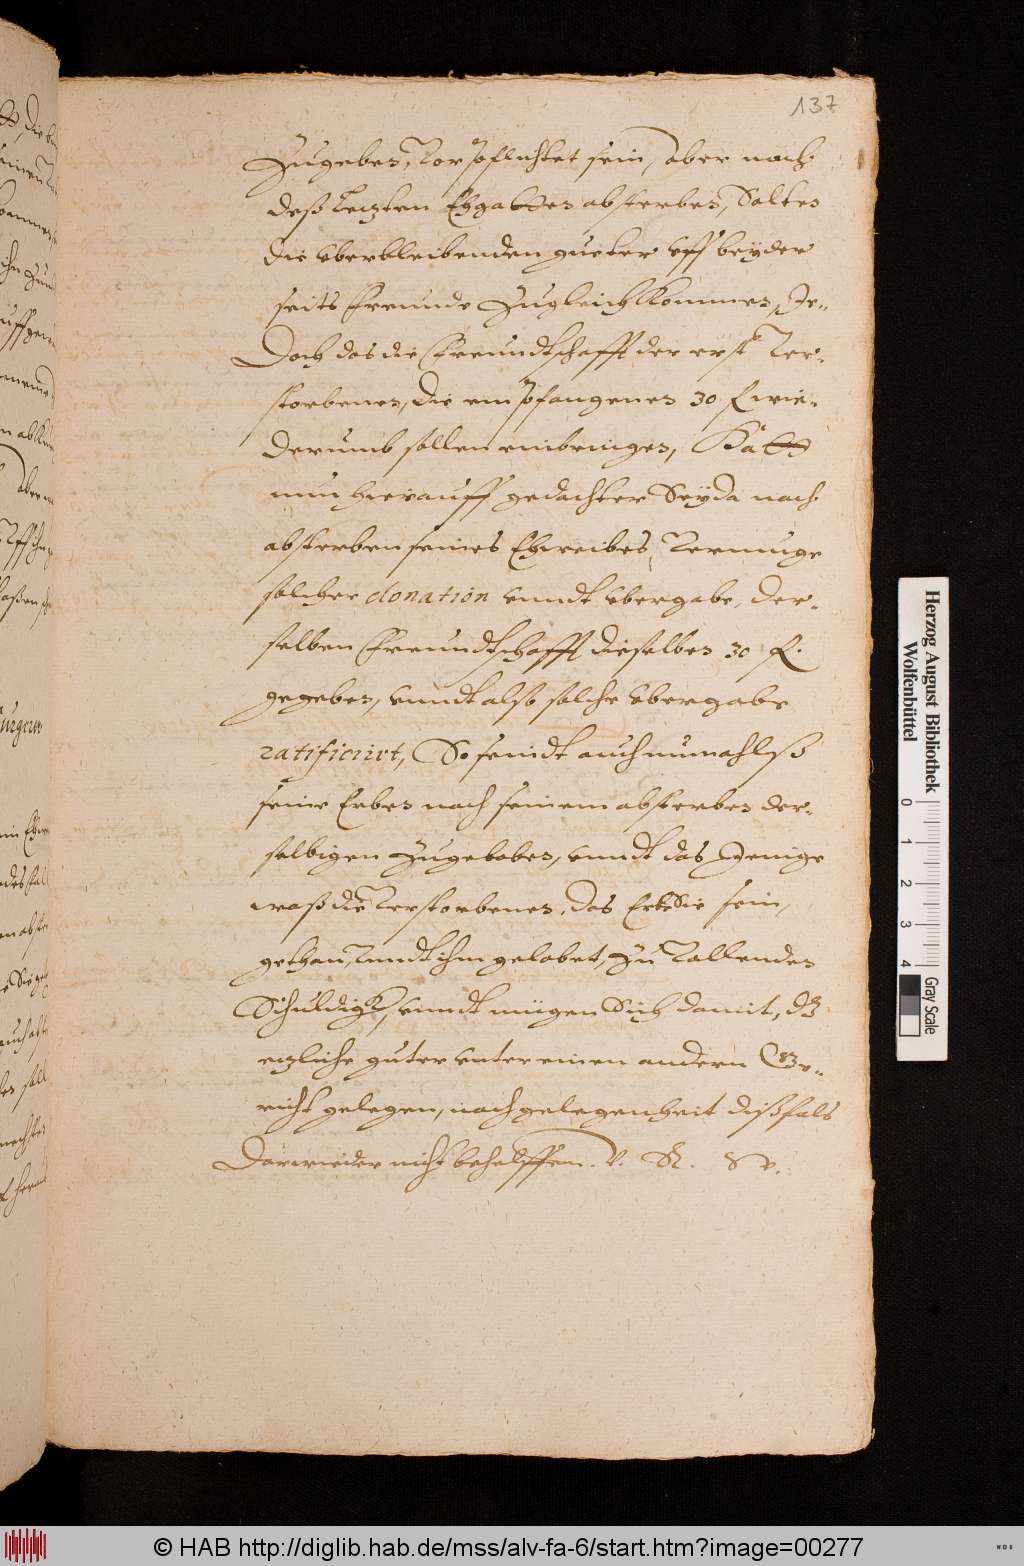 137
zugeben, Vorpflichtet sein, aber nach
deß Letzten Ehgattes absterben, Solten
die vberbleibenden gueter vff beyder
seits Freunde zugleich Kommen, Je-
doch das die Freundtschafft der erst Ver-
storbenen, die empfangenen 30 f wie-
derumb sollen einbringen, Hatt
nun hierauff gedachter Seyda nach
absterben seines Ehweibes, Vermuge
solcher donation vnndt vbergabe, der-
selben Freundtschafft dieselben 30 f.
gegeben, vnndt also solche vbergabe
ratificirt, So seindt auch nunmahlß
seine Erben nach seinem absterben der-
selbigen zugeloben, vnndt das Jenige
waß die Verstorbenen, das Erbe sein,
gethan, Vnndt ihm gelobet, zu Vollenden
Schuldigk, vnndt mügen Sich damit, dz
etzliche guter vnter einen andern Ge-
richt gelegen, nach gelegenheit dißfals
Darwieder nicht behelffen. V. R. w.
Herzog August Bibliothek
Wolfenbüttel
0 1 2 3 4
Gray Scale
© HAB http://diglib.hab.de/mss/alv-fa-6/start.htm?image=00277